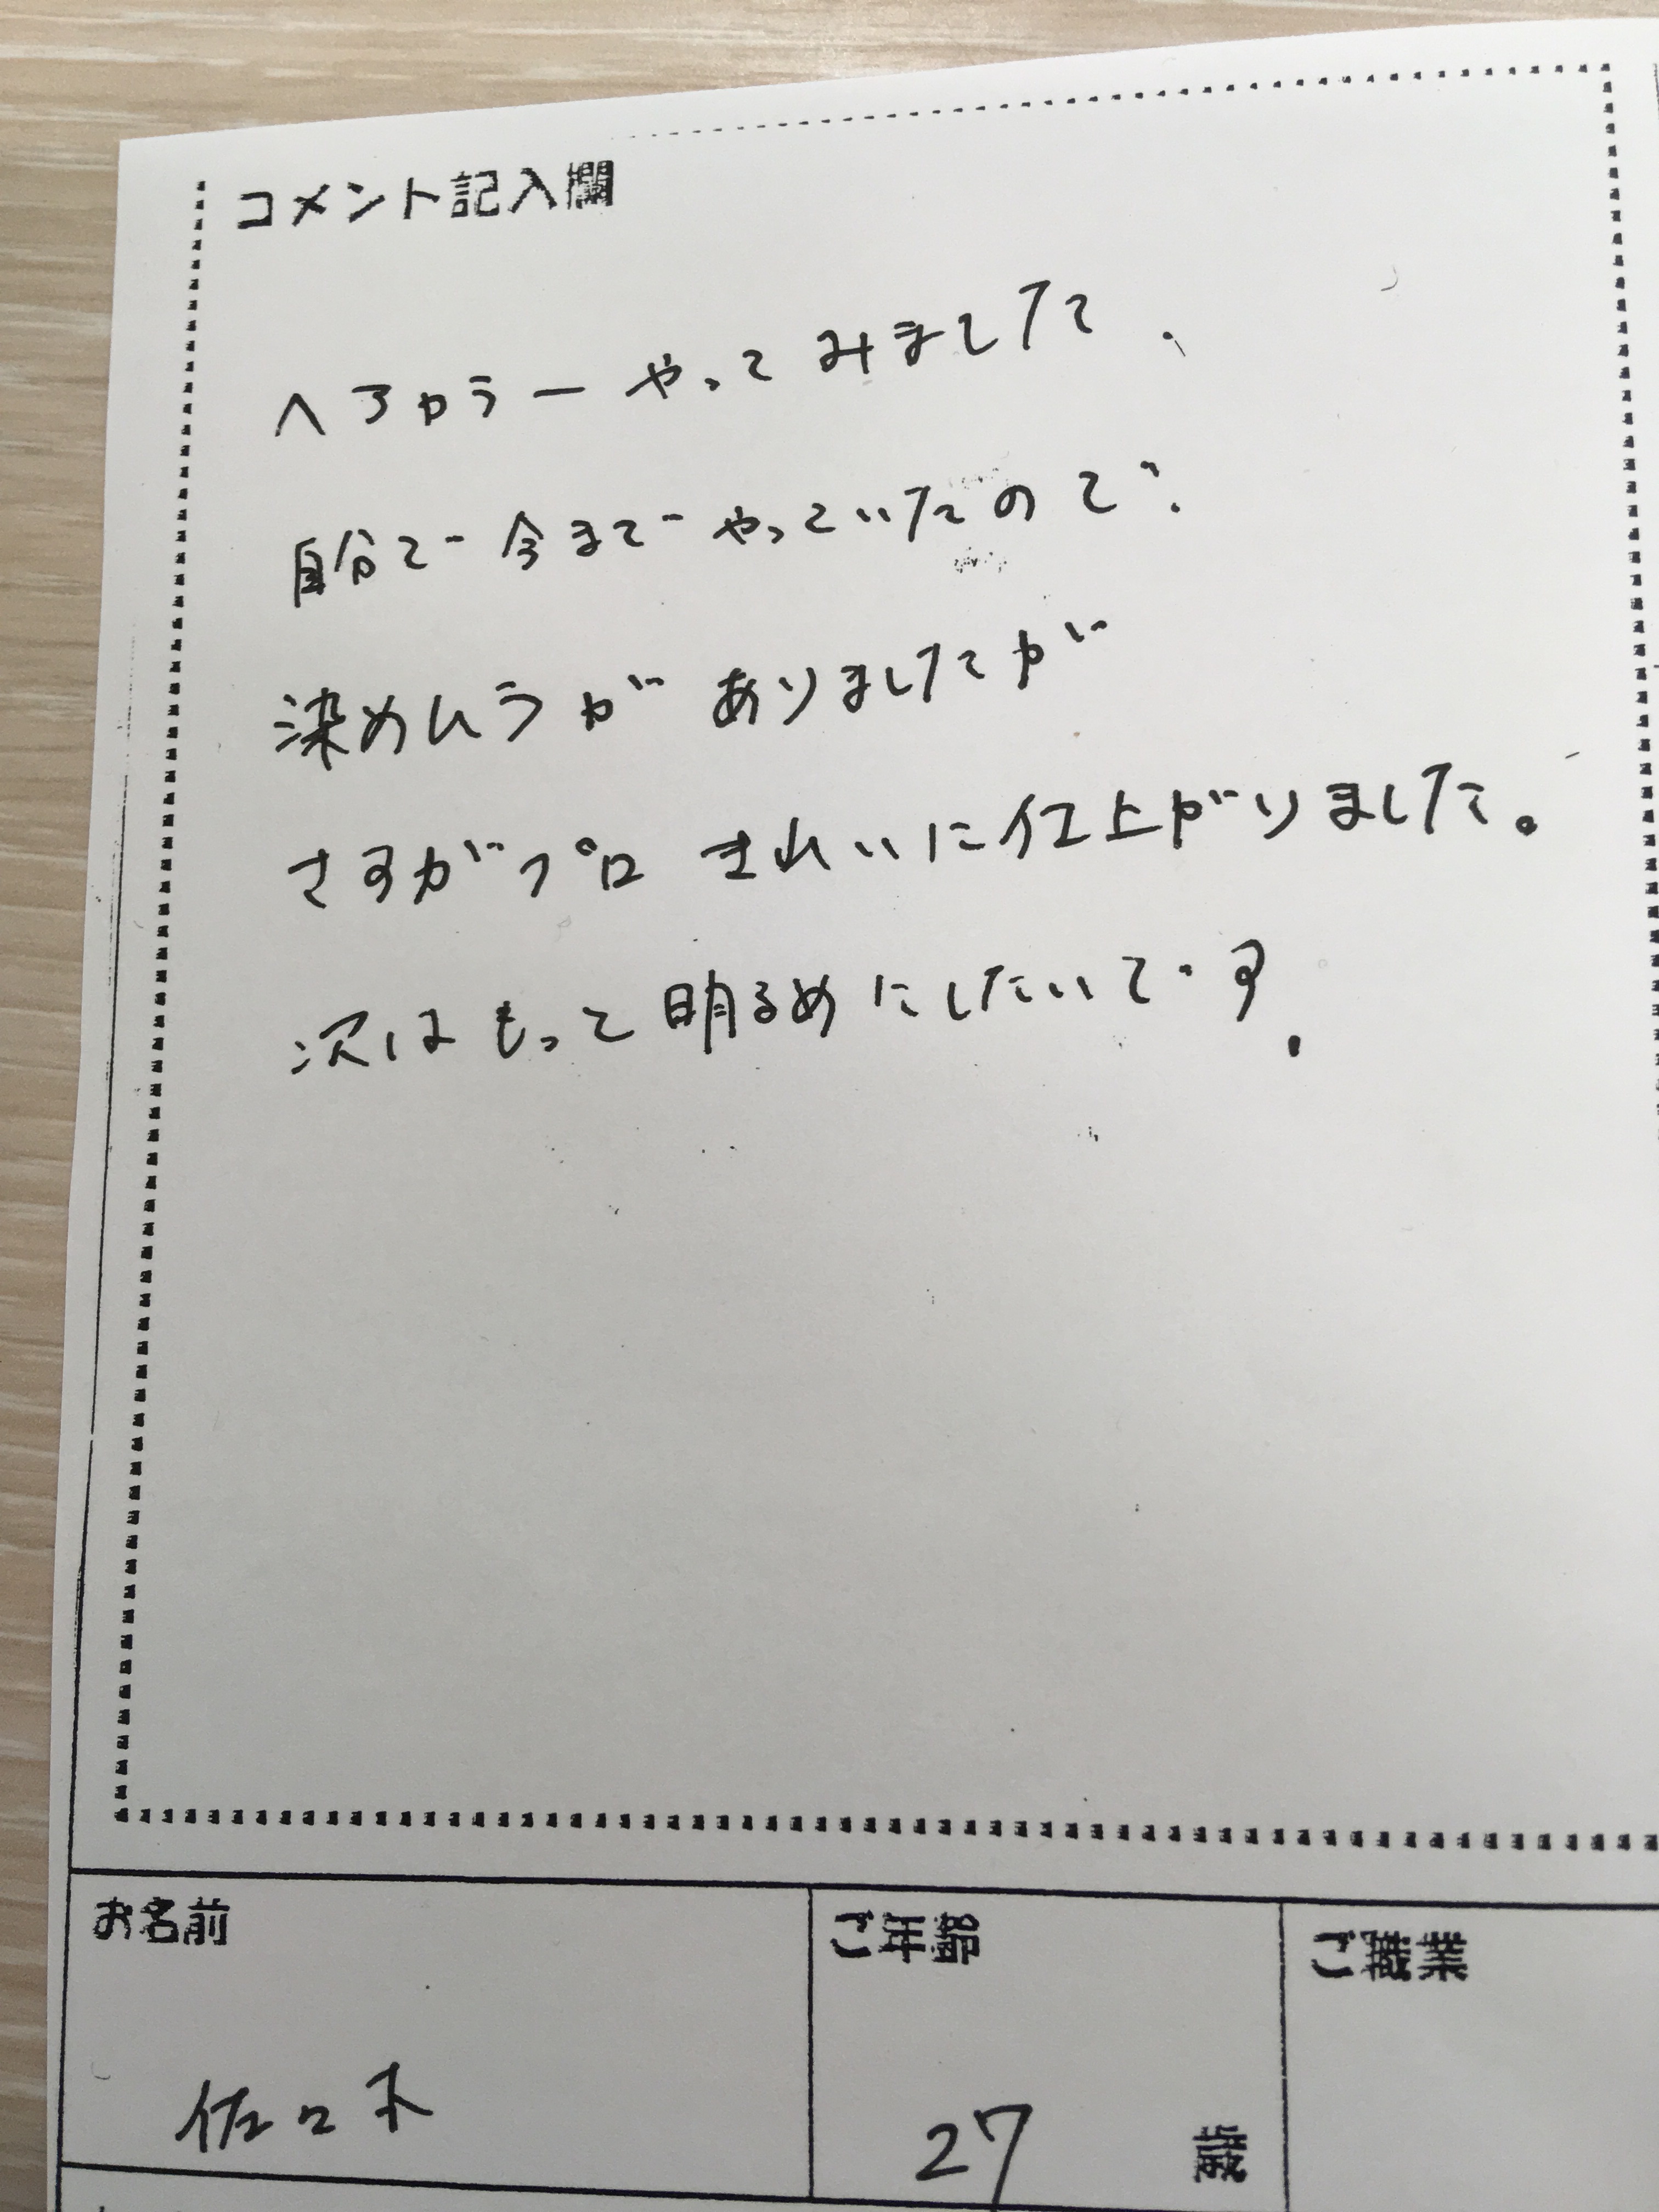 コメント記入欄
ヘアカラーやってみました、
自分で今までやっていたので、
染めムラがありましたが
さすがプロ きれいに仕上がりました。
次はもっと明るめにしたいです.
お名前
ご年齢
ご職業
佐々木
27 歳